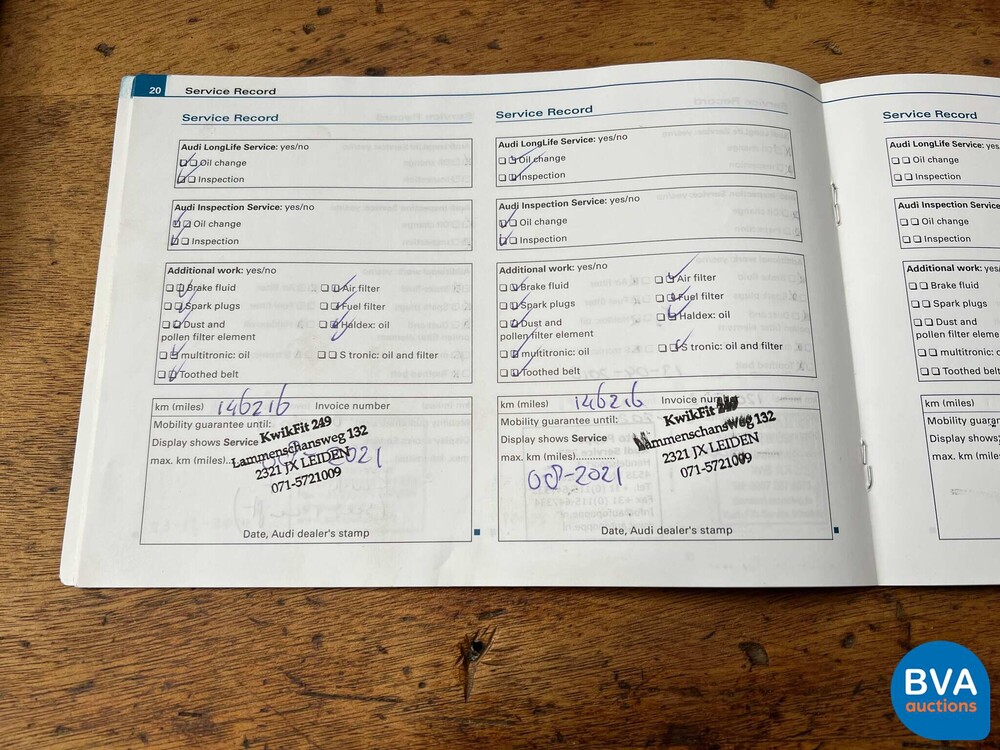 20 Service Record
Service Record
Audi LongLife Service: yes/no
Oil change
Inspection
Audi Inspection Service: yes/no
Oil change
Inspection
Additional work: yes/no
Brake fluid
Air filter
Spark plugs
Fuel filter
Dust and
pollen filter element
Haldex: oil
multitronic: oil
S tronic: oil and filter
Toothed belt
km (miles) 146216 Invoice number
Mobility guarantee until:
Display shows Service
max. km (miles)..
KwikFit 249
Lammenschansweg 132
2321 JX LEIDEN
071-5721009
Date, Audi dealer's stamp
Service Record
Audi LongLife Service: yes/no
Oil change
Inspection
Audi Inspection Service: yes/no
Oil change
Inspection
Additional work: yes/no
Brake fluid
Air filter
Spark plugs
Fuel filter
Dust and
pollen filter element
Haldex: oil
multitronic: oil
S tronic: oil and filter
Toothed belt
km (miles) 146216 Invoice number
Mobility guarantee until:
Display shows Service
max. km (miles).............
08-2021
KwikFit 249
Lammenschansweg 132
2321 JX LEIDEN
071-5721009
Date, Audi dealer's stamp
Service Record
Audi LongLife Service: yes
Oil change
Inspection
Audi Inspection Service
Oil change
Inspection
Additional work: yes/no
Brake fluid
Spark plugs
Dust and
pollen filter eleme
multitronic:
Toothed belt
km (miles)
Mobility guaran
Display shows
max. km (mile
BVA
auctions